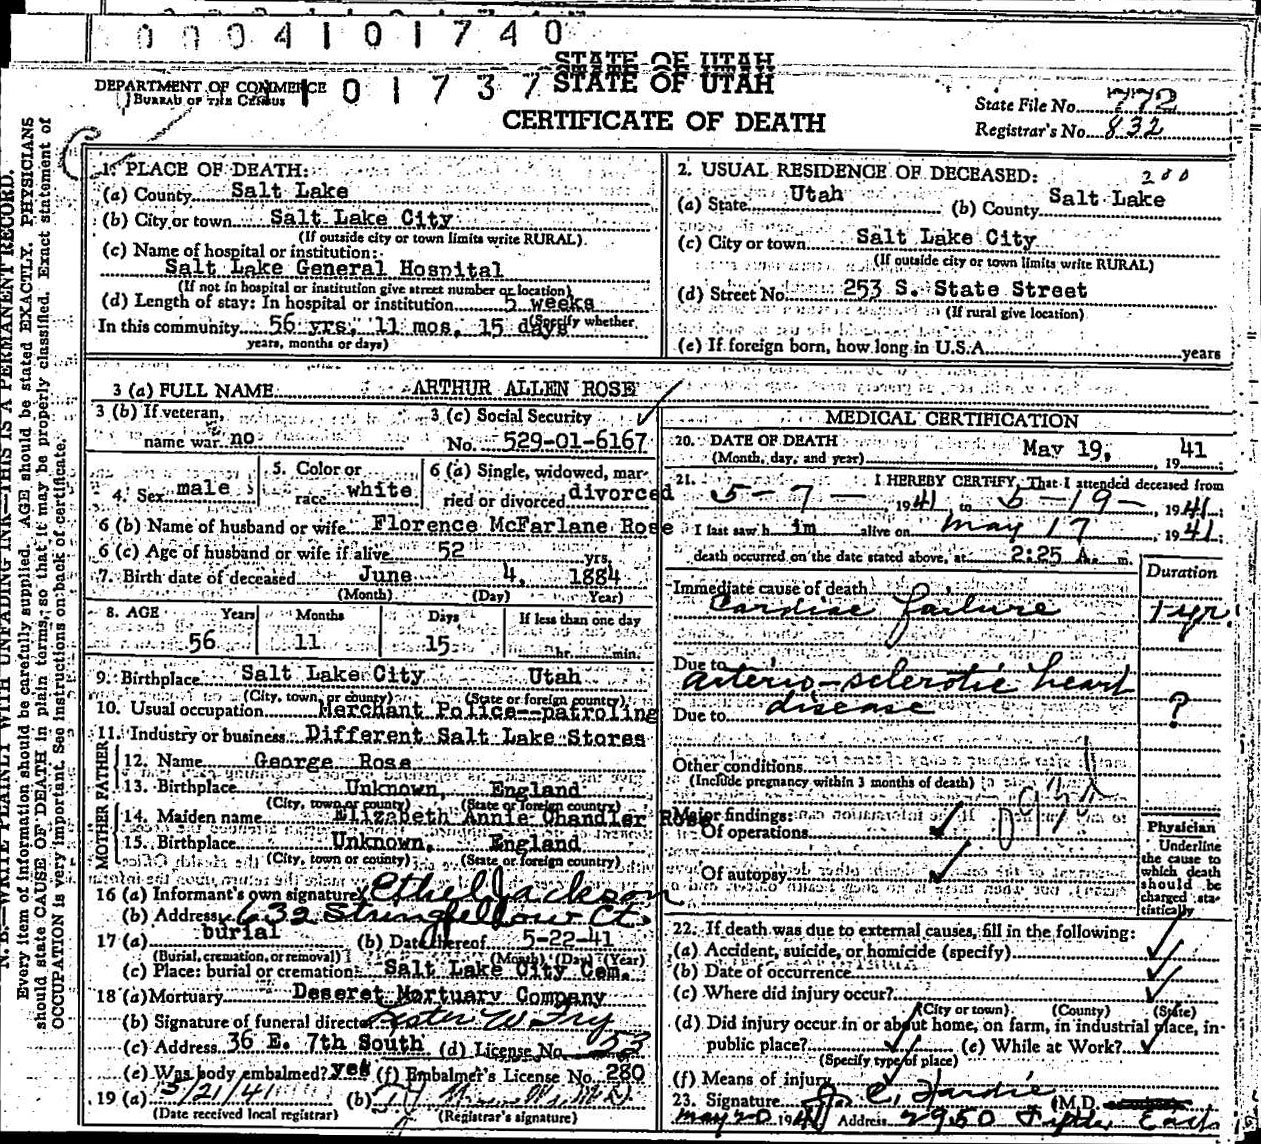 0004101740
STATE OF UTAH
DEPARTMENT OF COMMERCE
BUREAU OF THE CENSUS
101737
STATE OF UTAH
CERTIFICATE OF DEATH
State File No. 772
Registrar's No. 832
N. B.—WRITE PLAINLY WITH UNFADING INK—THIS IS A PERMANENT RECORD.
Every item of information should be carefully supplied. AGE should be stated EXACTLY. PHYSICIANS
should state CAUSE OF DEATH in plain terms, so that it may be properly classified. Exact statement of
OCCUPATION is very important. See instructions on back of certificate.
1. PLACE OF DEATH:
(a) County Salt Lake
(b) City or town Salt Lake City
(If outside city or town limits write RURAL)
(c) Name of hospital or institution:
Salt Lake General Hospital
(If not in hospital or institution give street number or location)
(d) Length of stay: In hospital or institution 5 weeks
(Specify whether
In this community 56 yrs, 11 mos, 15 days
years, months or days)
2. USUAL RESIDENCE OF DECEASED:
200
(a) State Utah (b) County Salt Lake
(c) City or town Salt Lake City
(If outside city or town limits write RURAL)
(d) Street No. 253 S. State Street
(If rural give location)
(e) If foreign born, how long in U.S.A. years
3 (a) FULL NAME ARTHUR ALLEN ROSE
3 (b) If veteran,
name war no
3 (c) Social Security
No. 529-01-6167
4. Sex male
5. Color or
race white
6 (a) Single, widowed, mar-
ried or divorced divorced
6 (b) Name of husband or wife Florence McFarlane Rose
6 (c) Age of husband or wife if alive 52 yrs.
7. Birth date of deceased June 4, 1884
(Month) (Day) Year)
8. AGE Years Months Days If less than one day
56 11 15 hr. min.
9. Birthplace Salt Lake City Utah
(City, town, or county) (State or foreign country)
10. Usual occupation Merchant Police--patroling
11. Industry or business Different Salt Lake Stores
FATHER
12. Name George Rose
13. Birthplace Unknown, England
(City, town or county) (State or foreign country)
MOTHER
14. Maiden name Elizabeth Annie Chandler Rose
15. Birthplace Unknown, England
(City, town or county) (State or foreign country)
16 (a) Informant's own signature Ethel Jackson
(b) Address 632 Stringfellow Ct.
17 (a) burial (b) Date thereof 5-22-41
(Burial, cremation, or removal) (Month) (Day) (Year)
(c) Place: burial or cremation Salt Lake City Cem.
18 (a) Mortuary Deseret Mortuary Company
(b) Signature of funeral director Lester W. Fry
(c) Address 36 E. 7th South (d) License No. 53
(e) Was body embalmed? yes (f) Embalmer's License No. 280
19 (a) 5/21/41 (b)
(Date received local registrar) (Registrar's signature)
MEDICAL CERTIFICATION
20. DATE OF DEATH
(Month, day, and year) May 19, 1941
21. I HEREBY CERTIFY, That I attended deceased from
5-7- 1941 to 5-19- 1941;
I last saw h im alive on May 17 1941;
death occurred on the date stated above, at 2:25 A. m.
Duration
Immediate cause of death
Cardiac failure 1 yr.
Due to
arterio-sclerotic heart
disease ?
Due to
Other conditions
(Include pregnancy within 3 months of death)
Major findings:
Of operations
Of autopsy
Physician
Underline
the cause to
which death
should be
charged sta-
tistically
22. If death was due to external causes, fill in the following:
(a) Accident, suicide, or homicide (specify)
(b) Date of occurrence
(c) Where did injury occur?
(City or town) (County) (State)
(d) Did injury occur in or about home, on farm, in industrial place, in-
public place? (e) While at Work?
(Specify type of place)
(f) Means of injury
23. Signature C. Hardie (M.D.
May 20 1941 Address 2950 East